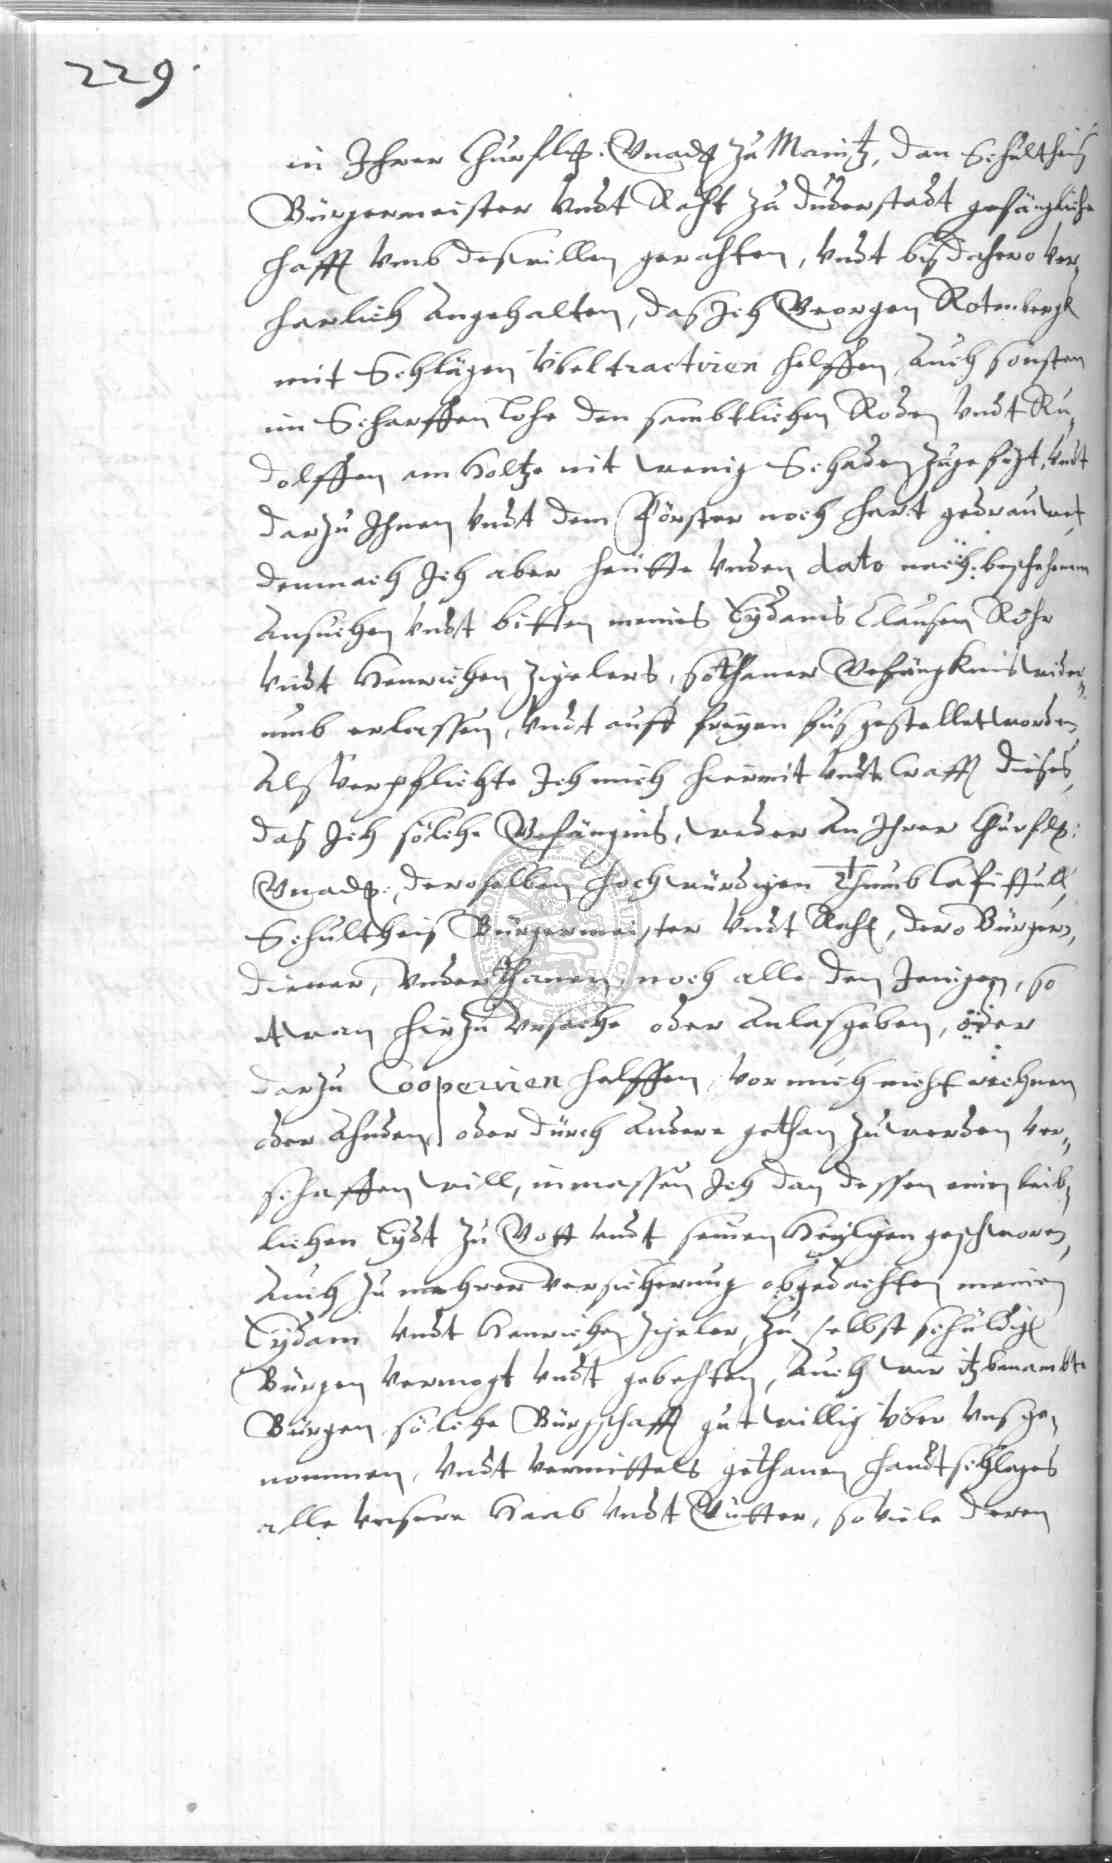 229.
in Ihrer Churflg: Gnadg zu Maintz, dan Schultheis
Bürgermeister vndt Raht zu Duderstadt gefängliche
hafft vmb deswillen gerahten, vndt bis dahero ver¬
harlich angehalten, das Ich Georgen Rotenbergk
mit Schlägen vbel tractiren helffen, Auch sonsten
im Scharffenlohe den sambtlichen Roden vndt Ru¬
dolffen am Holtze nit wenig Schaden zugefügt, vndt
darzu Ihnen vndt dem Förster noch hart gedrauwet
demnach Ich aber heutte vnden dato nach beschehenem
Ansuchen vndt bitten meines Eydams Clausen Rohr
vndt Henrichen Zigelers, sothaner Gefängknis wider¬
umb erlassen, vndt auff freyen fus gestellet worden,
Als verpflichte Ich mich hiermit vndt Crafft dieses,
das Ich solche Gefängnis, weder an Ihrer Churflg:
Gnadg:, deroselben hochwürdigen Thumb Capittull,
Schultheis Bürgermeister vndt Raht, dero Bürgern,
diener, vnderthanen, noch alle den Jenigen, so
etwan hirzu Vrsache oder Anlas geben, oder
darzu Cooperiren helffen, vor mich nicht rechnen
oder Ahnden, oder durch Andere gethan zu werden ver¬
schaffen will, inmassen Ich dan dessen einen leib¬
lichen Eydt zu Gott vndt seinen Heyligen geschworen,
Auch zu mehrer versicherung obgedachten meinen
Eydam vndt Henrichen Zigeler, zu selbst schuldige
Bürgen vermogt vndt gebehten, Auch wir itzbenambte
Bürgen solche Bürgschafft gutwillig vber vns ge¬
nommen, vndt vermittels gethanen handtschlages
alle vnsere Haab vndt Gütter, so viele deren